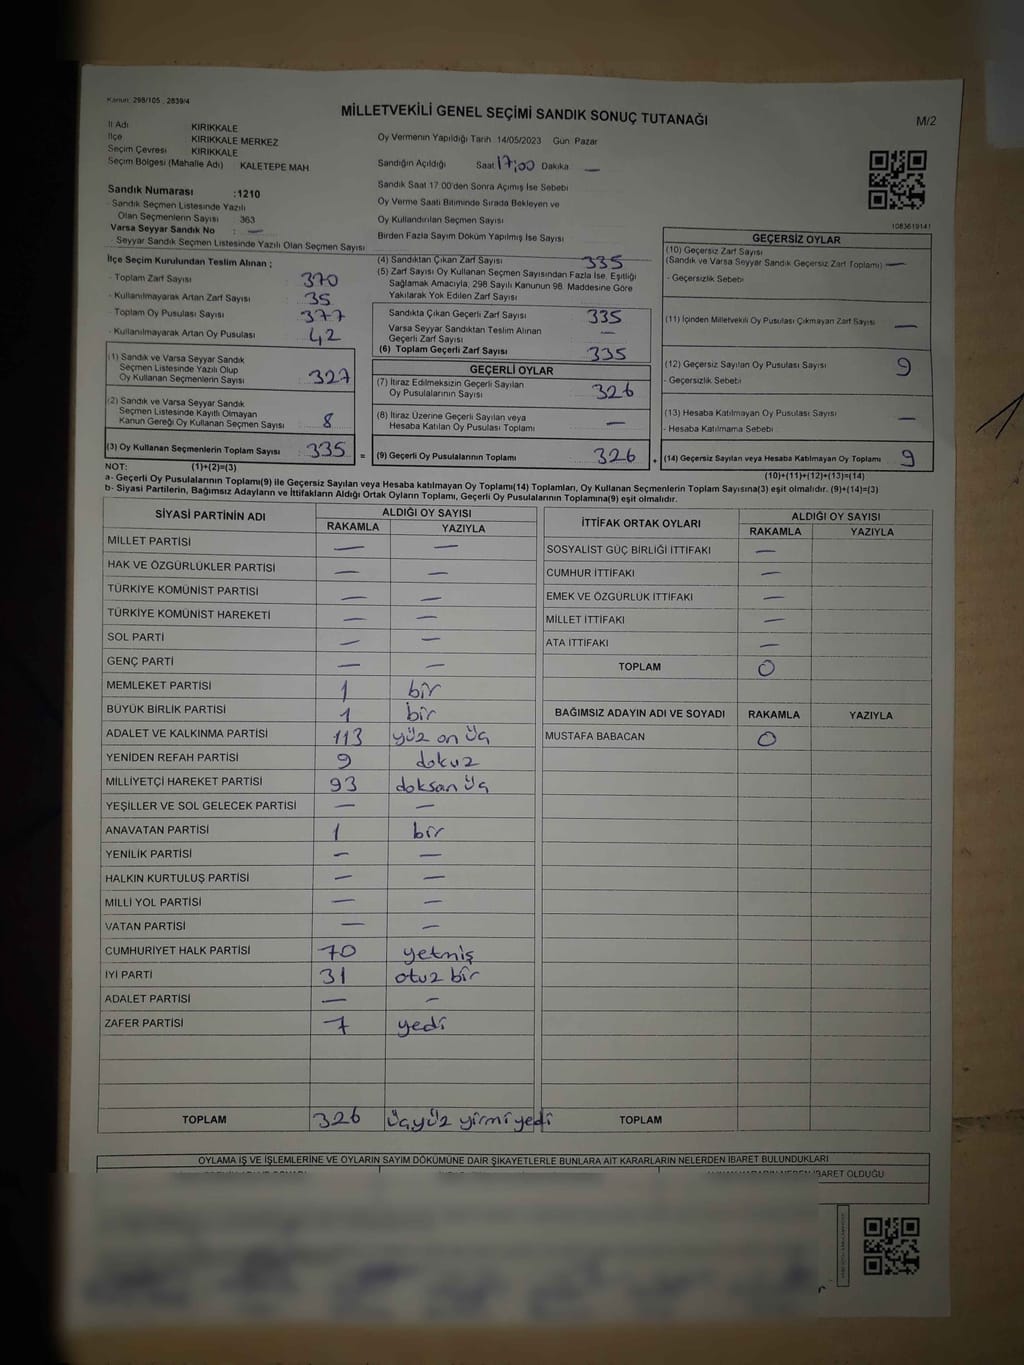 Kanun: 298/105 , 2839/4
MİLLETVEKİLİ GENEL SEÇİMİ SANDIK SONUÇ TUTANAĞI
M/2
İl Adı KIRIKKALE
İlçe KIRIKKALE MERKEZ
Seçim Çevresi KIRIKKALE
Seçim Bölgesi (Mahalle Adı) KALETEPE MAH
Oy Vermenin Yapıldığı Tarih 14/05/2023 Gün Pazar
Sandığın Açıldığı Saat 17:00 Dakika —
Sandık Saat 17 00'den Sonra Açımış İse Sebebi
Oy Verme Saati Bitiminde Sırada Bekleyen ve
Oy Kullandırılan Seçmen Sayısı
Birden Fazla Sayım Döküm Yapılmış İse Sayısı
Sandık Numarası :1210
Sandık Seçmen Listesinde Yazılı
Olan Seçmenlerin Sayısı 363
Varsa Seyyar Sandık No : —
Seyyar Sandık Seçmen Listesinde Yazılı Olan Seçmen Sayısı
1083619141
İlçe Seçim Kurulundan Teslim Alınan ;
- Toplam Zarf Sayısı 370
- Kullanılmayarak Artan Zarf Sayısı 35
- Toplam Oy Pusulası 377
- Kullanılmayarak Artan Oy Pusulası 42
(1) Sandık ve Varsa Seyyar Sandık
Seçmen Listesinde Yazılı Olup
Oy Kullanan Seçmenlerin Sayısı 327
(2) Sandık ve Varsa Seyyar Sandık
Seçmen Listesinde Kayıtlı Olmayan
Kanun Gereği Oy Kullanan Seçmen Sayısı 8
(3) Oy Kullanan Seçmenlerin Toplam Sayısı 335 =
(4) Sandıktan Çıkan Zarf Sayısı 335
(5) Zarf Sayısı Oy Kullanan Seçmen Sayısından Fazla İse, Eşitliği
Sağlamak Amacıyla, 298 Sayılı Kanunun 98. Maddesine Göre
Yakılarak Yok Edilen Zarf Sayısı
Sandıkta Çıkan Geçerli Zarf Sayısı 335
Varsa Seyyar Sandıktan Teslim Alınan
Geçerli Zarf Sayısı —
(6) Toplam Geçerli Zarf Sayısı 335
GEÇERLİ OYLAR
(7) İtiraz Edilmeksizin Geçerli Sayılan
Oy Pusulalarının Sayısı 326
(8) İtiraz Üzerine Geçerli Sayılan veya
Hesaba Katılan Oy Pusulası Toplamı —
(9) Geçerli Oy Pusulalarının Toplamı 326 +
GEÇERSİZ OYLAR
(10) Geçersiz Zarf Sayısı
(Sandık ve Varsa Seyyar Sandık Geçersiz Zarf Toplamı) —
- Geçersizlik Sebebi
(11) İçinden Milletvekili Oy Pusulası Çıkmayan Zarf Sayısı —
(12) Geçersiz Sayılan Oy Pusulası Sayısı 9
- Geçersizlik Sebebi
(13) Hesaba Katılmayan Oy Pusulası Sayısı —
- Hesaba Katılmama Sebebi
(14) Geçersiz Sayılan veya Hesaba Katılmayan Oy Toplamı 9
NOT: (1)+(2)=(3)
(10)+(11)+(12)+(13)=(14)
a- Geçerli Oy Pusulaları Toplamı(9) ile Geçersiz Sayılan veya Hesaba katılmayan Oy Toplamı(14) Toplamları, Oy Kullanan Seçmenlerin Toplam Sayısına(3) eşit olmalıdır. (9)+(14)=(3)
b- Siyasi Partilerin, Bağımsız Adayların ve İttifakların Aldığı Ortak Oyların Toplamı, Geçerli Oy Pusulalarının Toplamına(9) eşit olmalıdır.
SİYASİ PARTİNİN ADI ALDIĞI OY SAYISI
RAKAMLA YAZIYLA
MİLLET PARTİSİ — —
HAK VE ÖZGÜRLÜKLER PARTİSİ — —
TÜRKİYE KOMÜNİST PARTİSİ — —
TÜRKİYE KOMÜNİST HAREKETİ — —
SOL PARTİ — —
GENÇ PARTİ — —
MEMLEKET PARTİSİ 1 bir
BÜYÜK BİRLİK PARTİSİ 1 bir
ADALET VE KALKINMA PARTİSİ 113 yüz on üç
YENİDEN REFAH PARTİSİ 9 dokuz
MİLLİYETÇİ HAREKET PARTİSİ 93 doksan üç
YEŞİLLER VE SOL GELECEK PARTİSİ — —
ANAVATAN PARTİSİ 1 bir
YENİLİK PARTİSİ — —
HALKIN KURTULUŞ PARTİSİ — —
MİLLİ YOL PARTİSİ — —
VATAN PARTİSİ — —
CUMHURİYET HALK PARTİSİ 70 yetmiş
İYİ PARTİ 31 otuz bir
ADALET PARTİSİ — —
ZAFER PARTİSİ 7 yedi
TOPLAM 326 üçyüz yirmi yedi
İTTİFAK ORTAK OYLARI ALDIĞI OY SAYISI
RAKAMLA YAZIYLA
SOSYALİST GÜÇ BİRLİĞİ İTTİFAKI —
CUMHUR İTTİFAKI —
EMEK VE ÖZGÜRLÜK İTTİFAKI —
MİLLET İTTİFAKI —
ATA İTTİFAKI —
TOPLAM 0
BAĞIMSIZ ADAYIN ADI VE SOYADI RAKAMLA YAZIYLA
MUSTAFA BABACAN 0
TOPLAM
OYLAMA İŞ VE İŞLEMLERİNE VE OYLARIN SAYIM DÖKÜMÜNE DAİR ŞİKAYETLERLE BUNLARA AİT KARARLARIN NELERDEN İBARET BULUNDUKLARI
İBARET OLDUĞU